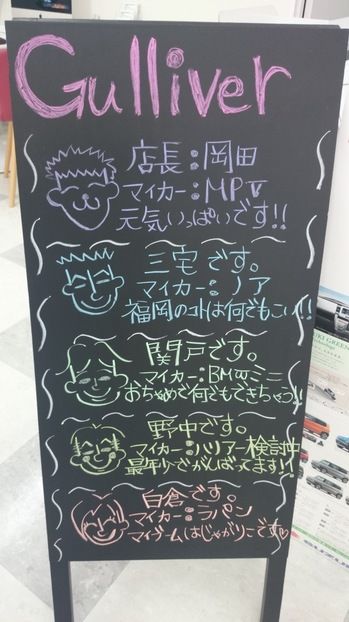 Gulliver
店長:岡田
マイカー:MPV
元気いっぱいです!!
三宅です。
マイカー:ノア
福岡のコトは何でもこい!!
関戸です。
マイカー:BMWミニ
おちゃめで何でもできちゃう!!
野中です。
マイカー:ハリアー検討中
最年少でがんばってます!!
白倉です。
マイカー:ラパン
マイブームはじゃがりこです♡